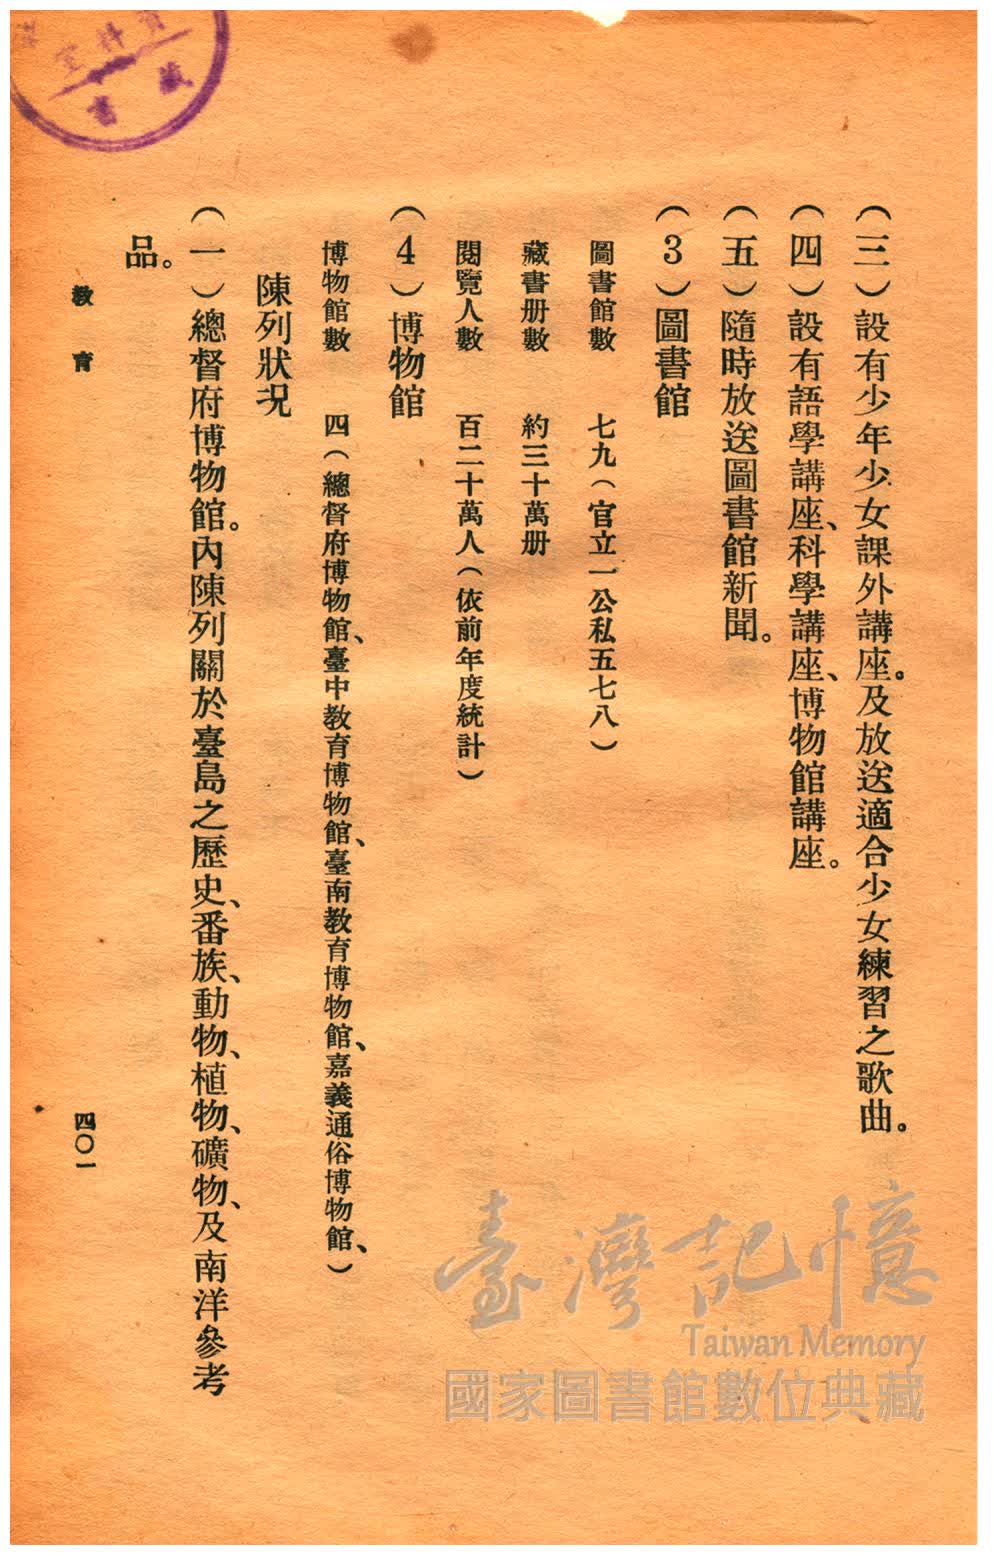 （三）設有少年少女課外講座。及放送適合少女練習之歌曲。
（四）設有語學講座、科學講座、博物館講座。
（五）隨時放送圖書館新聞。
（3）圖書館
圖書館數　七九（官立一公私五七八）
藏書册數　約三十萬册
閱覽人數　百二十萬人（依前年度統計）
（4）博物館
博物館數　四（總督府博物館、臺中教育博物館、臺南教育博物館、嘉義通俗博物館、）
陳列狀況
（一）總督府博物館。內陳列關於臺島之歷史、番族、動物、植物、礦物、及南洋參考
品。
教　育
四〇一
資料室
藏書
臺灣記憶
Taiwan Memory
國家圖書館數位典藏